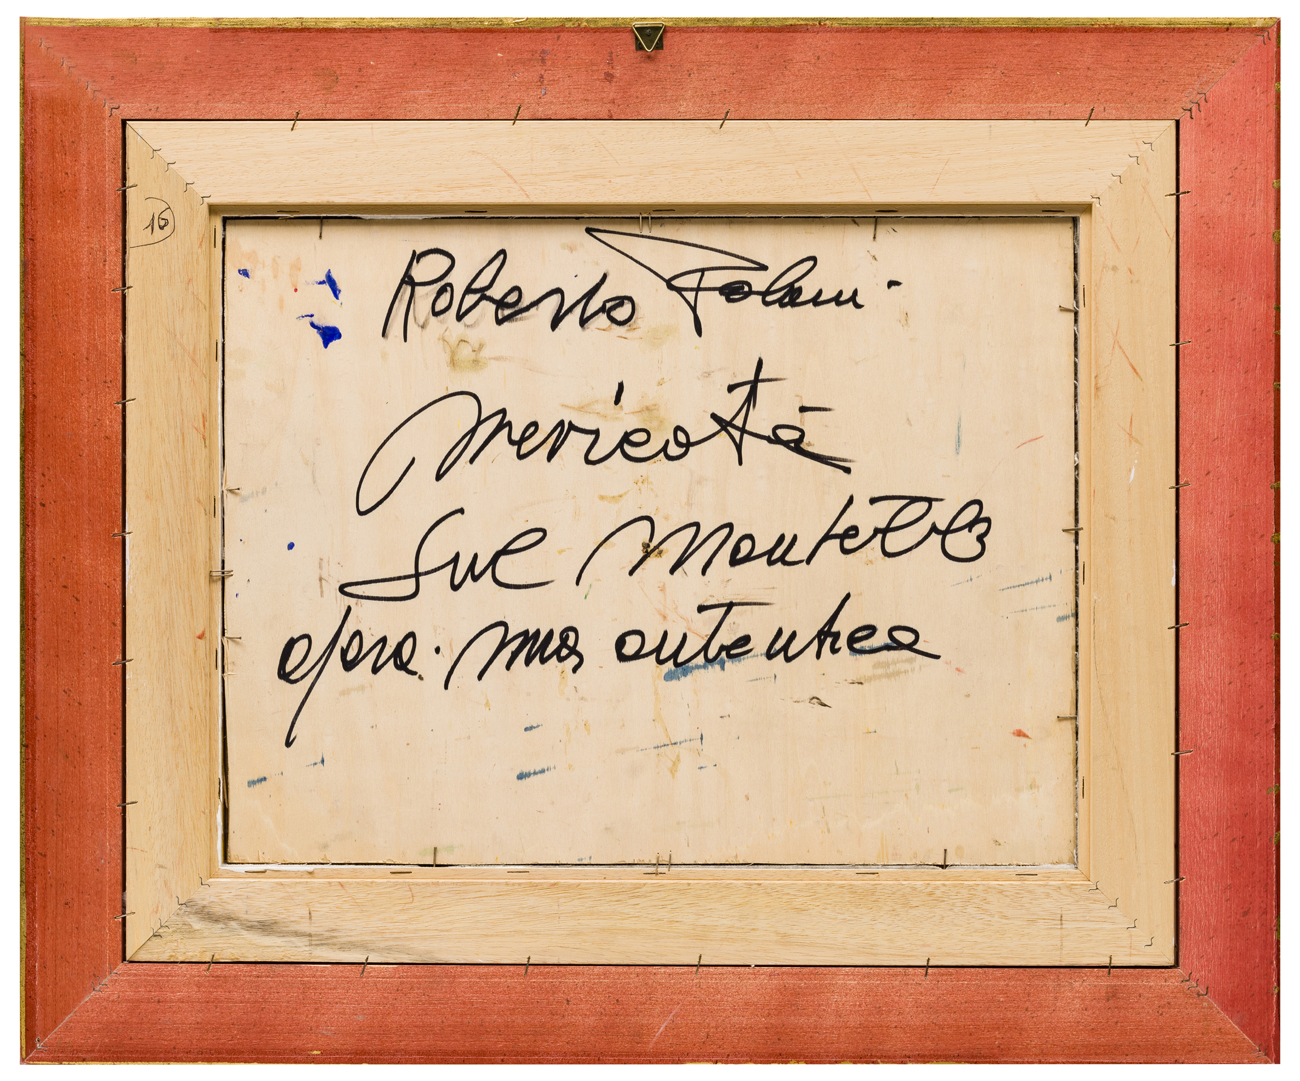 16
Roberto
nevicata
Sul Montello
opera mia autentica